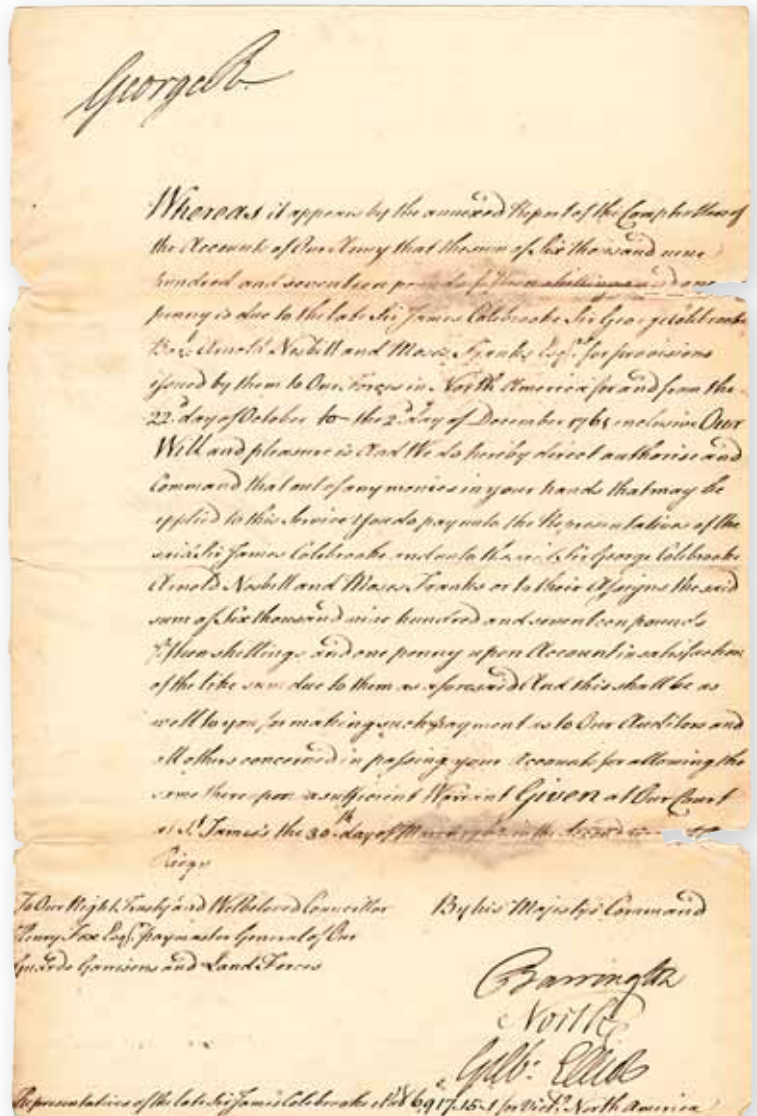 George R
Whereas it appears by the annexed Report of the Comptrollers of
the Accounts of Our Army that the sum of Six thousand nine
hundred and seventeen pounds fifteen shillings and one
penny is due to the late Sir James Colebrooke Sir George Colebrooke
Bart. Arnold Nesbitt and Moses Franks Esqrs. for provisions
issued by them to Our Forces in North America for and from the
22d. day of October to the 2d. day of December inclusive Our
Will and pleasure is And We do hereby direct authorise and
Command that out of any monies in your hands that may be
applied to this Service you do pay unto the Representatives of the
said Sir James Colebrooke and unto the said Sir George Colebrooke
Arnold Nesbitt and Moses Franks or to their Assigns the said
sum of Six thousand nine hundred and seventeen pounds
fifteen shillings and one penny upon Account in satisfaction
of the like sum due to them as aforesaid And this shall be as
well to you for making such payment as to Our Auditors and
all others concerned in passing your Accounts for allowing the
same thereupon a sufficient Warrant Given at Our Court
at St. James's the 30th. day of in the Second
Reign
To Our Right Trusty and Welbeloved Councillor
Henry Fox Esqr. paymaster General of Our
Guards Garrisons and Land Forces
By his Majesty's Command
Barrington
North
Gilb: Elliot
Representatives of the late Sir James Colebrooke £6917.15.1 for Vict. North America